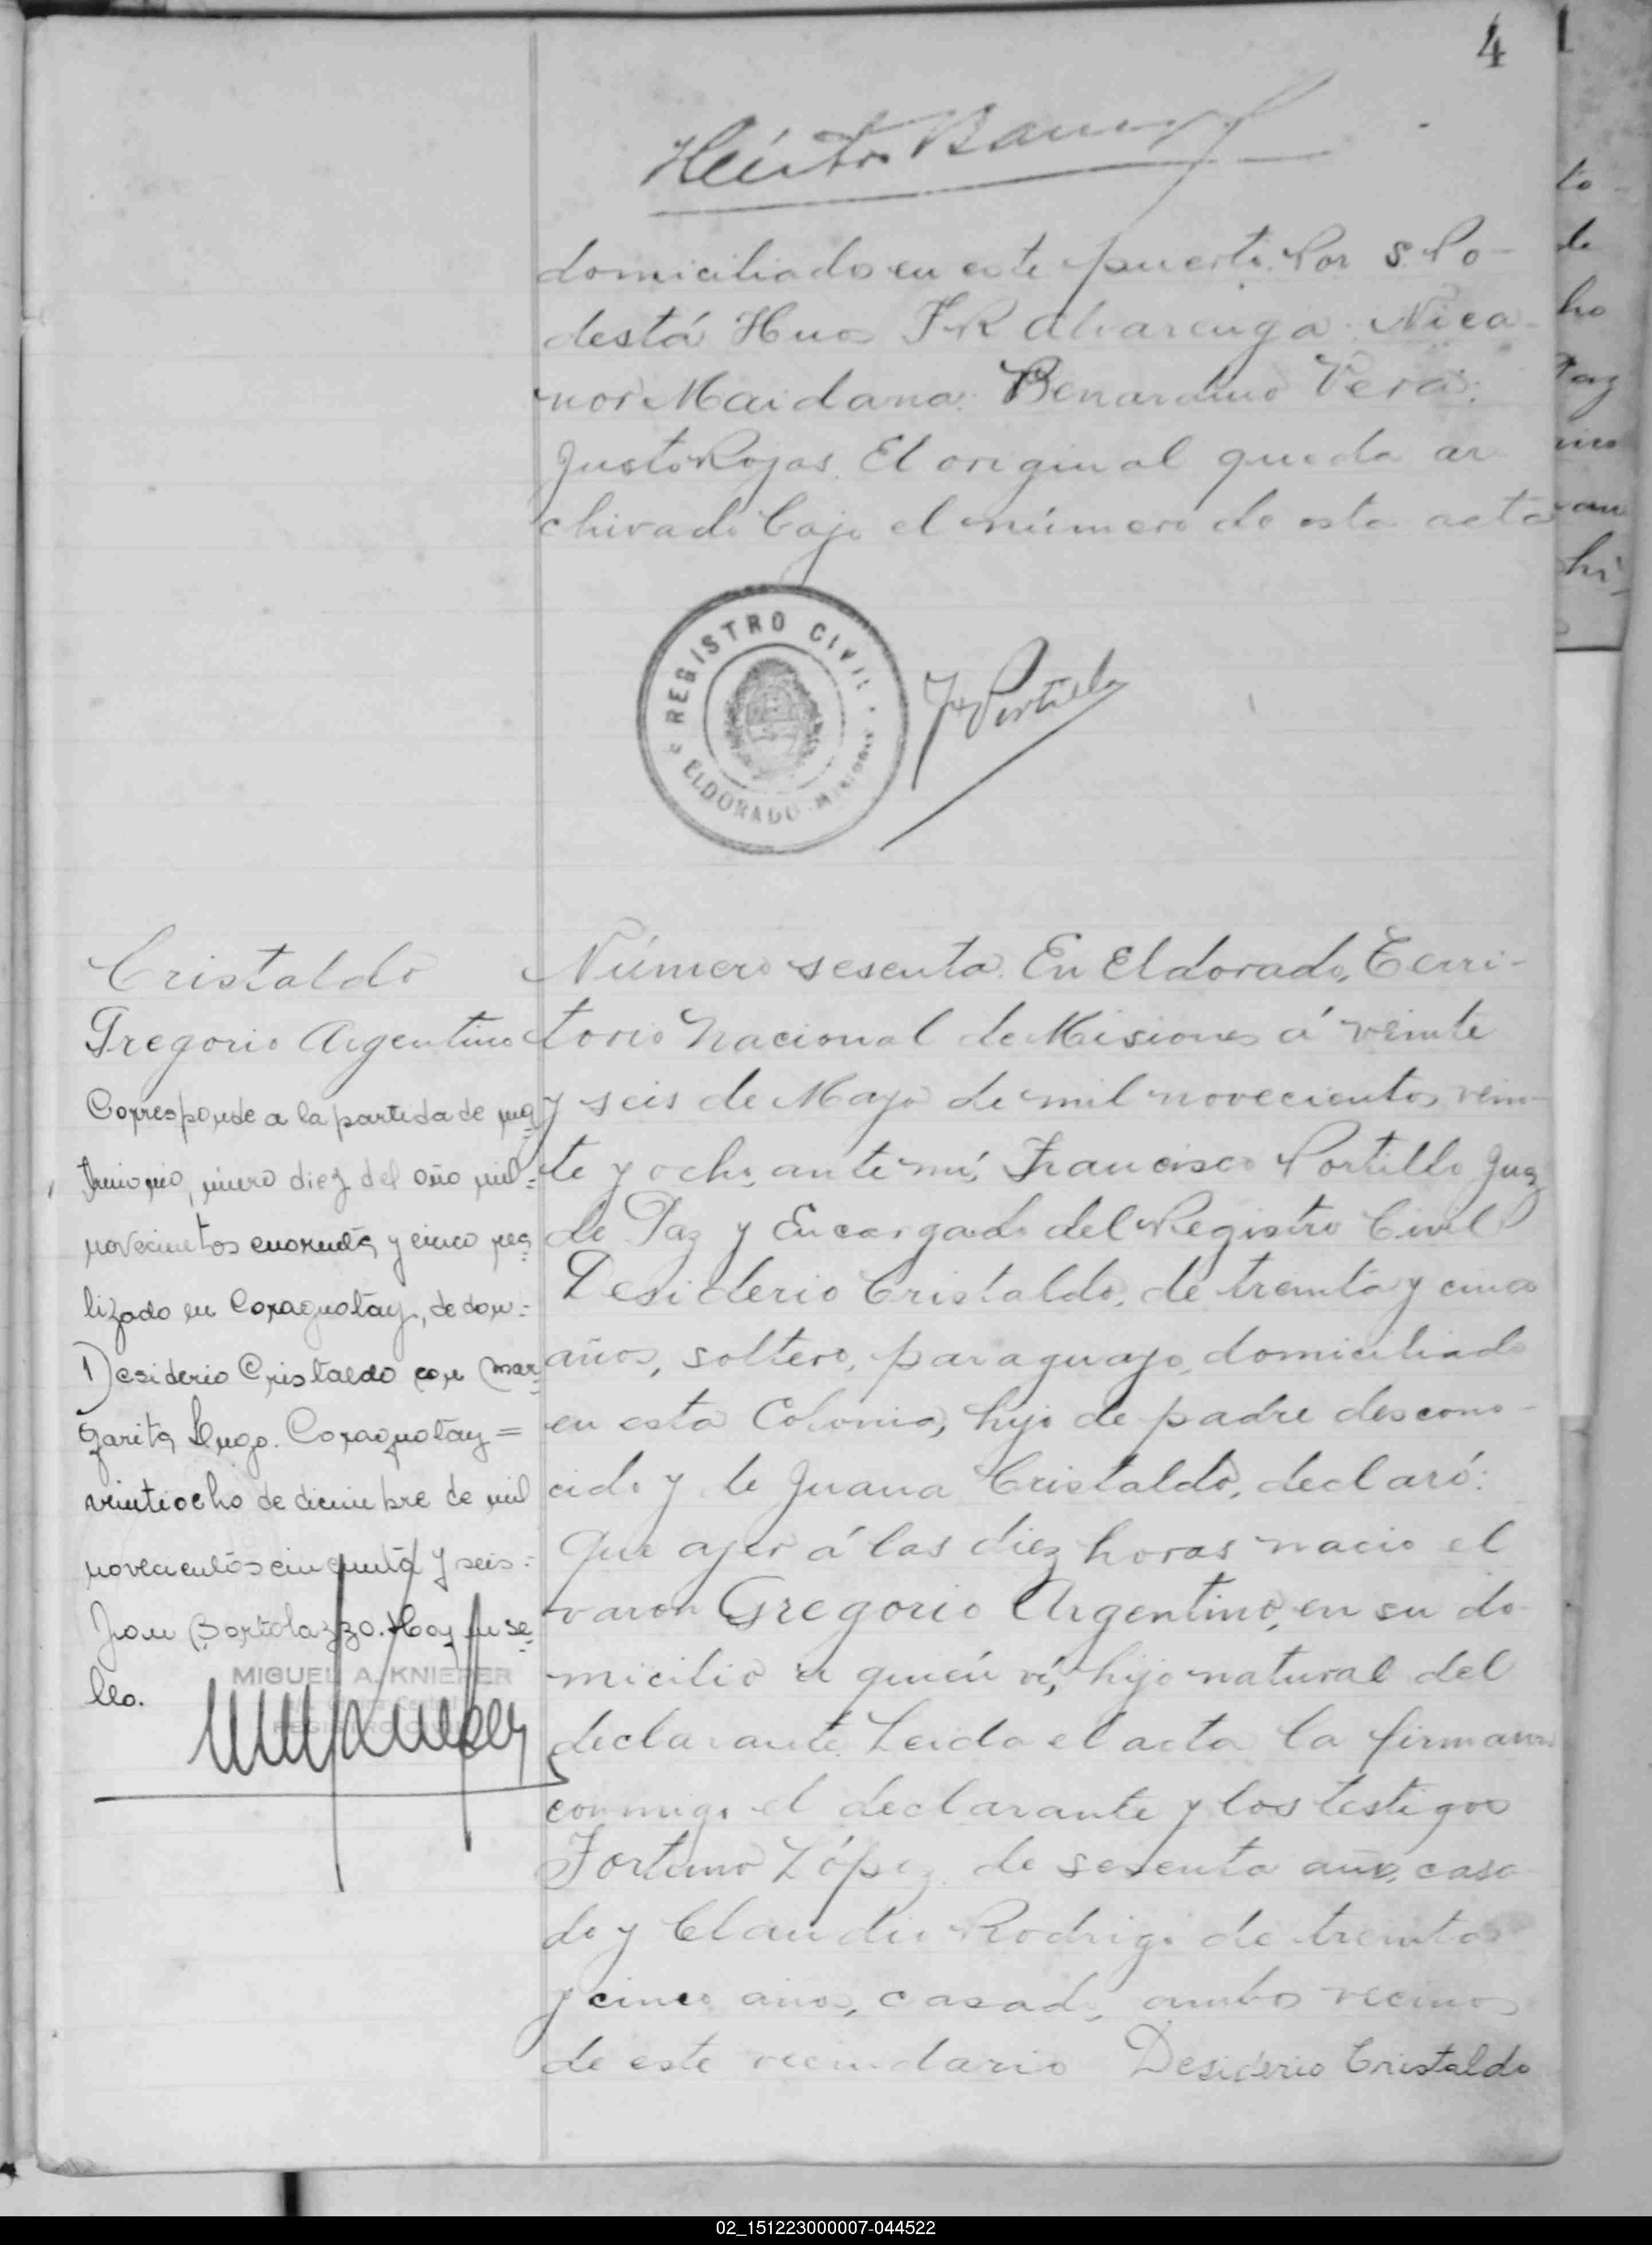 4
domiciliado en este puerto. Por S. Po-
destá Hnos J R Alvarenga. Nica-
nor Maidana. Benardino Vera.
Justo Rojas. El original queda ar
chivado bajo el número de esta acta
REGISTRO CIVIL
ELDORADO - MISIONES
Fco Portillo
Cristaldo
Gregorio Argentino
Corresponde a la partida de ma=
trimonio, número diez del año mil=
novecientos cuarenta y cinco rea=
lizado en Caraguatay, de don=
Desiderio Cristaldo con Mar=
garita Lugo. Caraguatay=
veintiocho de diciembre de mil
novecientos cincuenta y seis=
Juan Bortolazzo. Hay un se=
llo.
MIGUEL A. KNIEPER
REGISTRO CIVIL
Número sesenta. En Eldorado, Terri-
torio Nacional de Misiones á veinte
y seis de Mayo de mil novecientos vein-
te y ocho, ante mí, Francisco Portillo Juez
de Paz y Encargado del Registro Civil
Desiderio Cristaldo, de treinta y cinco
años, soltero, paraguayo, domiciliado
en esta Colonia, hijo de padre descono-
cido y de Juana Cristaldo, declaró:
Que ayer á las diez horas nacio el
varon Gregorio Argentino, en su do-
micilio a quién ví, hijo natural del
declarante. Leida el acta la firmaron
conmigo el declarante y los testigos
Fortuno López de sesenta años, casa
do y Claudio Rodrigo de treinta
y cinco años, casado, ambos vecinos
de este vecindario Desiderio Cristaldo
02_151223000007-044522